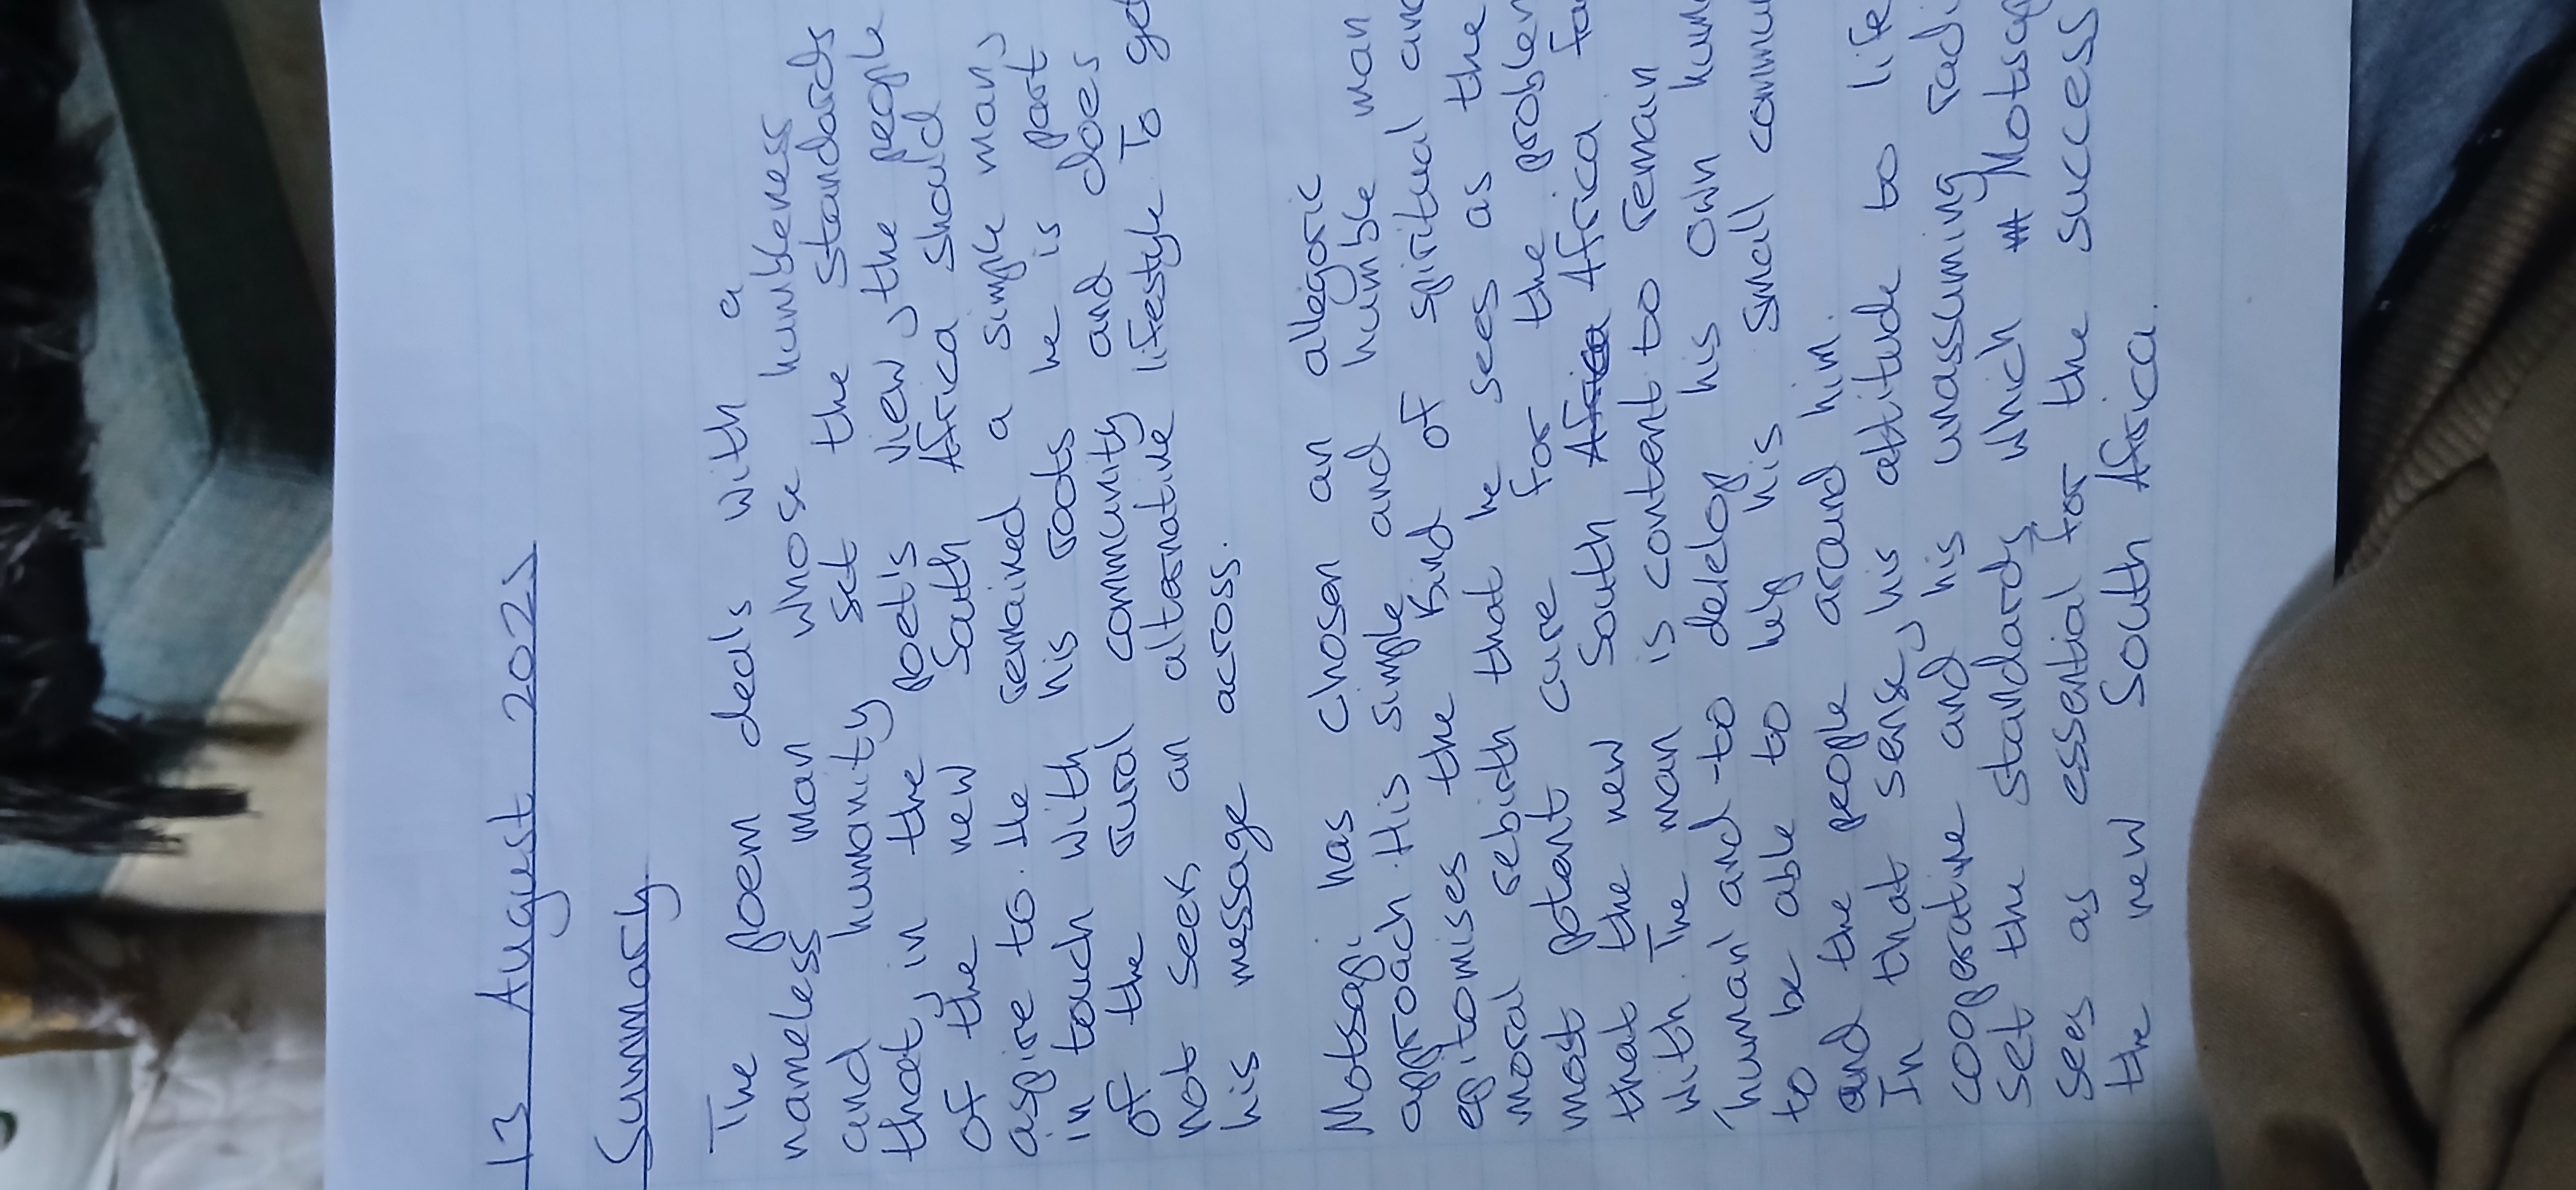 13 August 2025
Summary
The poem deals with a
nameless man whose humbleness
and humanity set the standards
that, in the poet's view, the people
of the new South Africa should
aspire to. He remained a simple man,
in touch with his roots he is part
of the rural community and does
not seek an alternative lifestyle To get
his message across.
Motsapi has chosen an allegoric
approach. His simple and humble man
epitomises the kind of spiritual and
moral rebirth that he sees as the
most potent cure for the problem
that the new South Africa Africa
with. The man is content to remain
'human' and to develop his own
to be able to help his small
and the people around him.
In that sense, his attitude to life
cooperative and his unassuming
set the standards which
sees as essential for the success
the new South Africa.